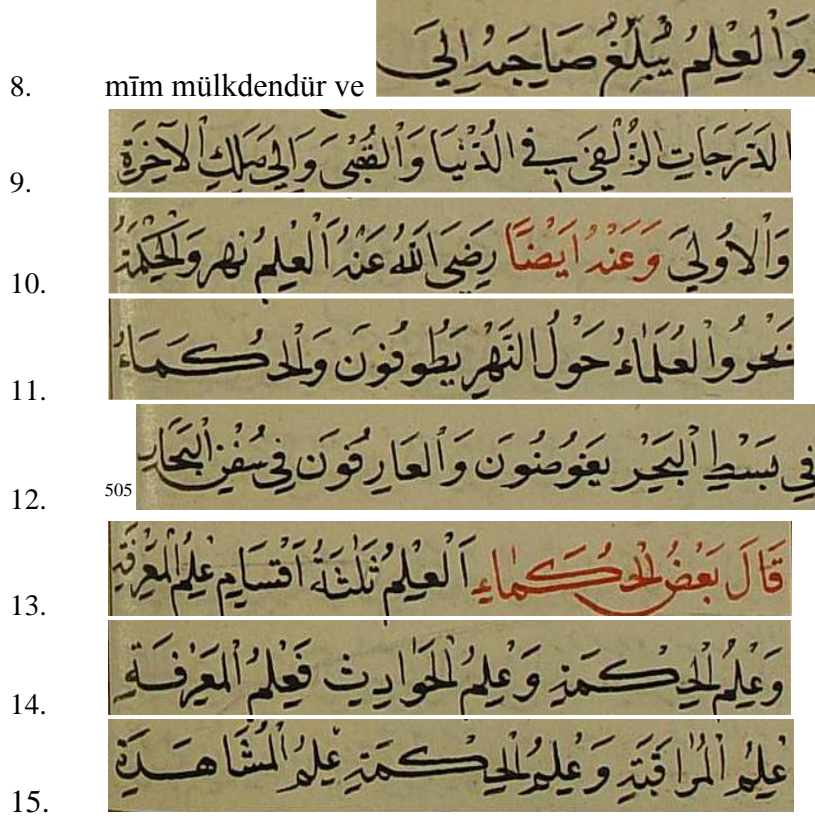 8. mīm mülkdendür ve وَالْعِلْمُ يُبَلِّغُ صَاحِبَهُ اِلَي
9. الدَّرَجَاتِ الزُّلْفَي فِي الدُّنْيَا وَالْعُقْبَي وَاِلَي مَلِكِ الْاٰخِرَةِ
10. وَالْاُولَي وَعَنْهُ اَيْضًا رَضِيَ اللهُ عَنْهُ اَلْعِلْمُ نهر وَالْحِكْمَةُ
11. بَحْرٌ وَالْعُلَمَاءُ حَوْلَ النَّهْرِ يَطُوفُونَ وَالْحُكَمَاءُ
12. 505 فِي بَسْطِ الْبَحْرِ يَغُوصُونَ وَالْعَارِفُونَ فِي سُفُنِ الْبَحَارِ
13. قَالَ بَعْضُ الْحُكَمَاءِ اَلْعِلْمُ ثَلٰثَةُ اَقْسَامٍ عِلْمُ الْمَعْرِفَةِ
14. وَعِلْمُ الْحِكْمَةِ وَعِلْمُ الْحَوَادِيثِ فَعِلْمُ الْمَعْرِفَةِ
15. عِلْمُ الْمُرَاقَبَةِ وَعِلْمُ الْحِكْمَةِ عِلْمُ الْمُشَاهَدَةِ